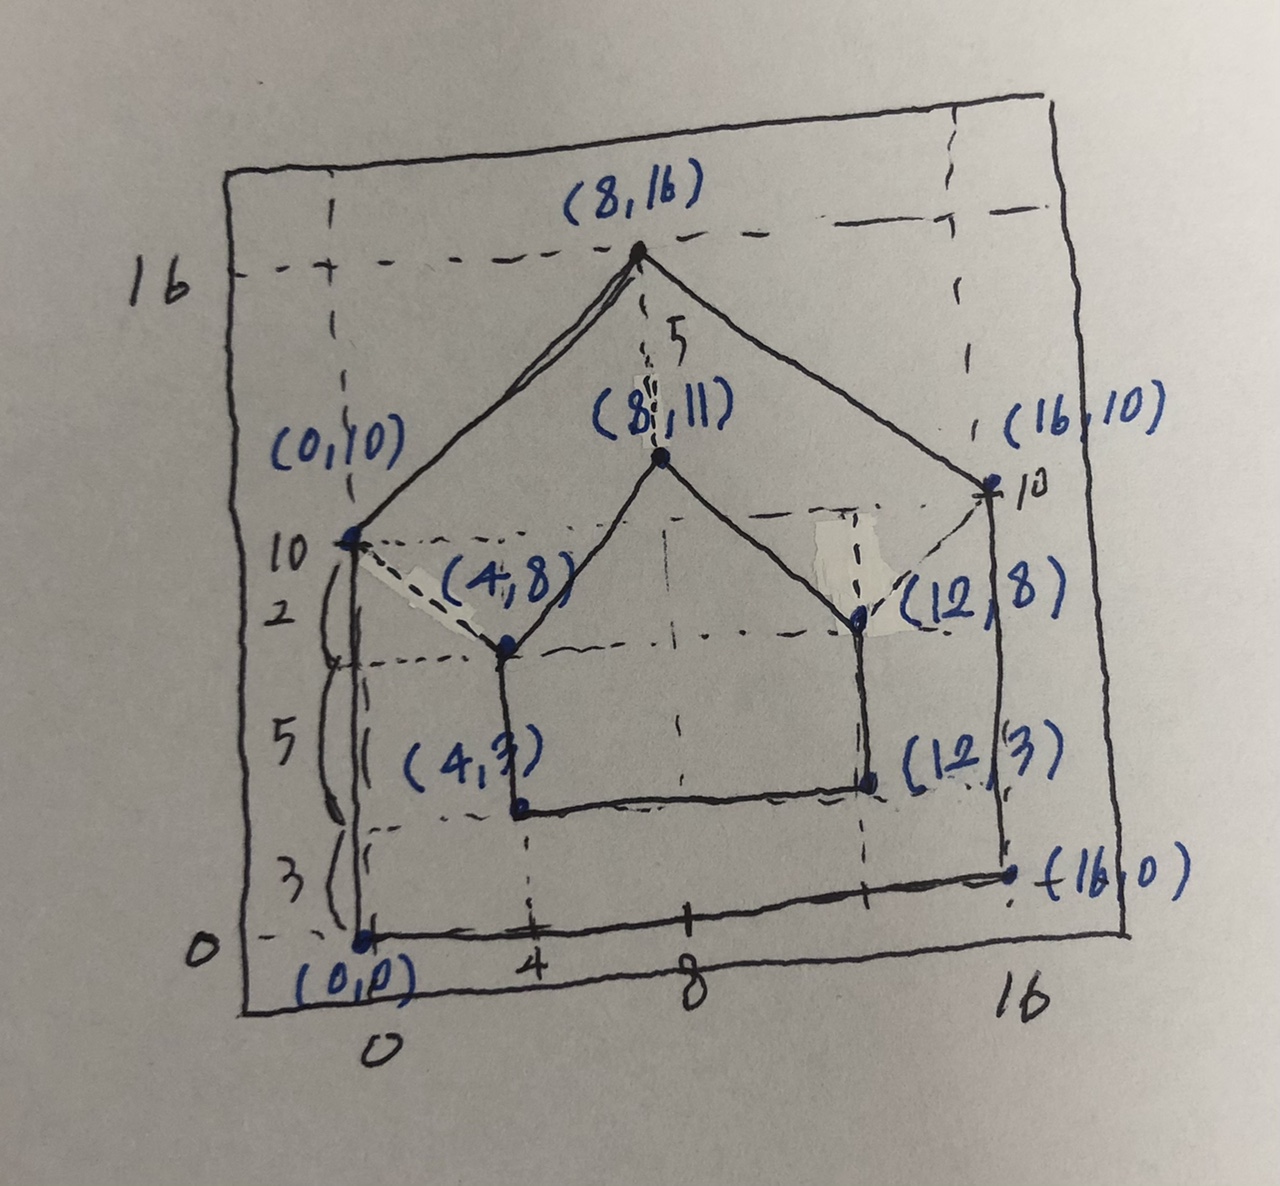 (8,16)
16
5
(8,11)
(16,10)
(0,10)
10
10
(4,8)
(12,8)
2
5
(4,3)
(12,3)
3
(16,0)
0
(0,0)
4
8
16
0